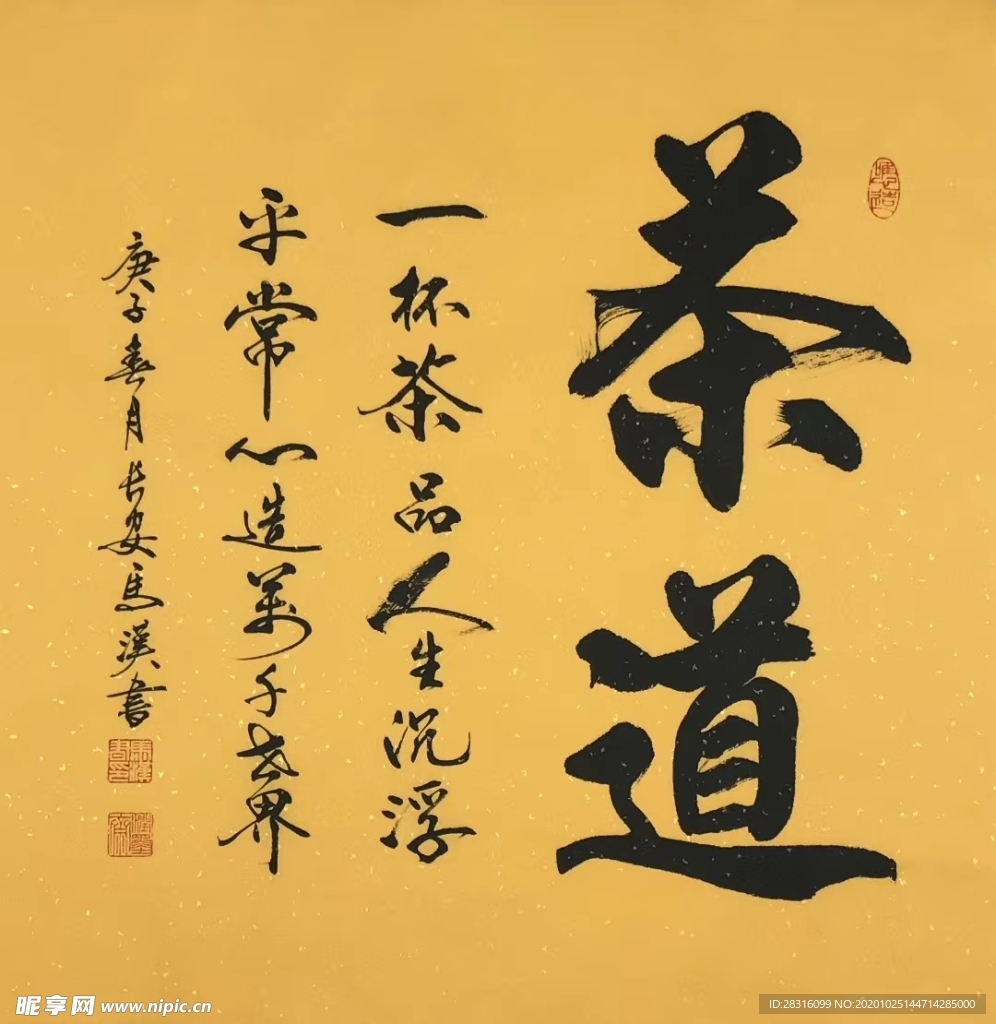 茶道
一杯茶品人生沉浮
平常心造萬千世界
庚子春月长安馬漢書
昵享网 www.nipic.cn
ID:28316099 NO:20201025144714285000